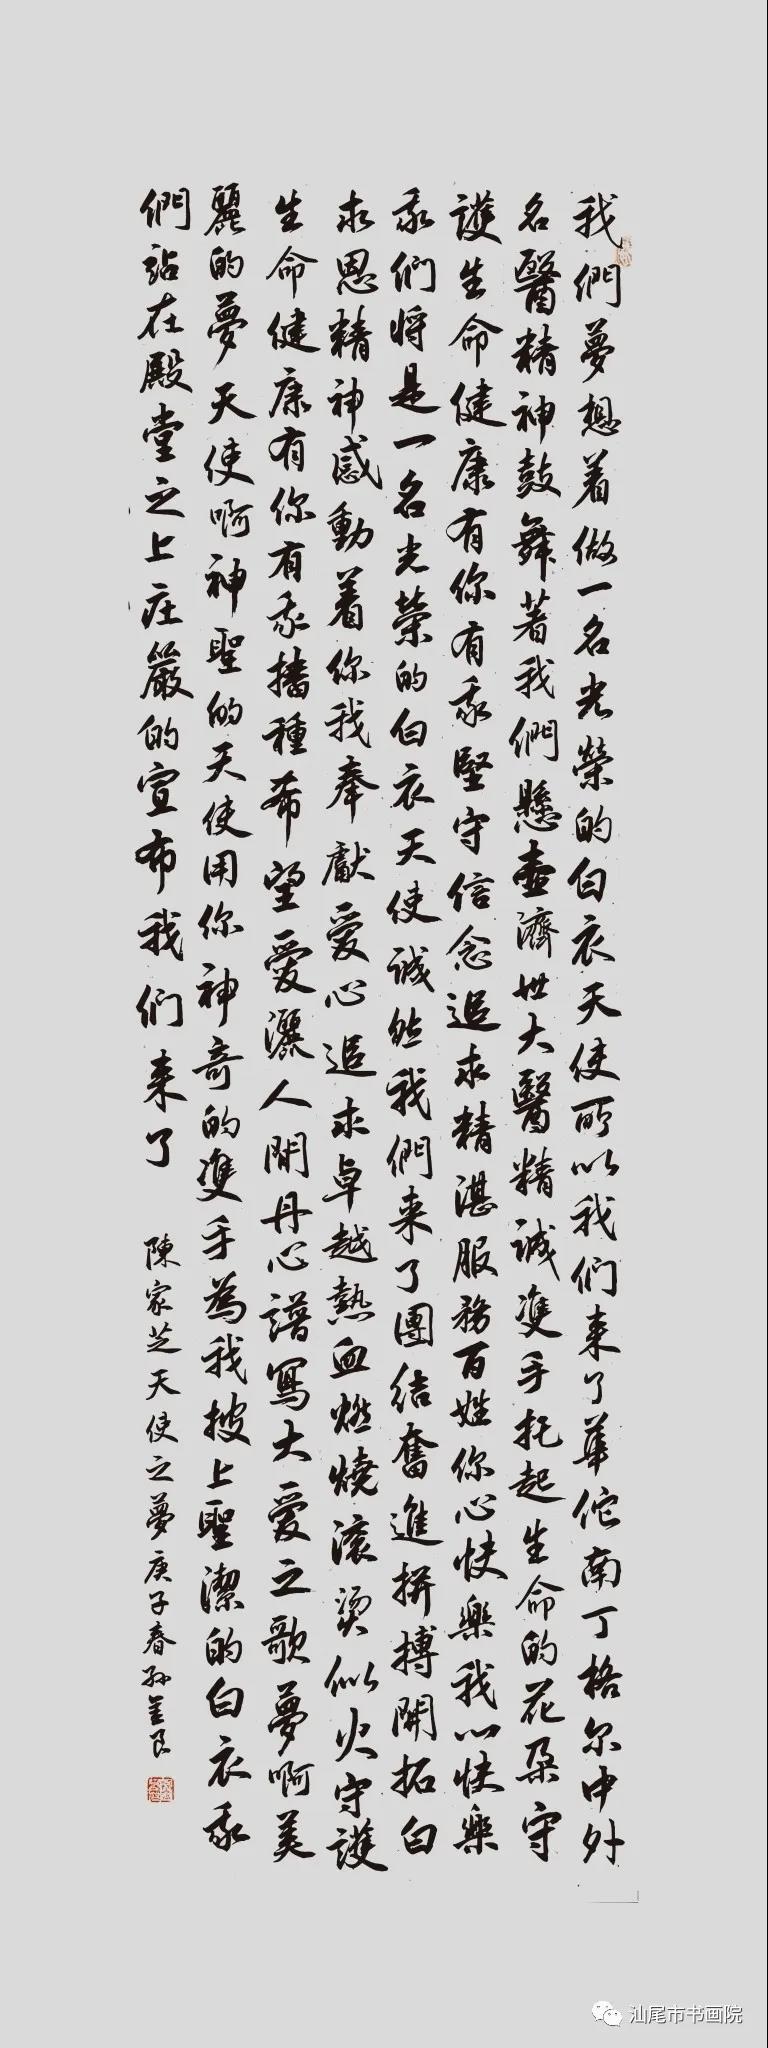 我們夢想着做一名光榮的白衣天使所以我们来了華佗南丁格尔中外
名醫精神鼓舞著我們懸壺濟世大醫精誠雙手托起生命的花朵守
護生命健康有你有我堅守信念追求精湛服務百姓你心快樂我心快樂
我们将是一名光榮的白衣天使誠然我們来了團結奮進拼搏開拓白
求恩精神感動着你我奉獻爱心追求卓越熱血燃燒滚燙似火守護
生命健康有你有我播種希望爱灑人間丹心譜寫大爱之歌夢啊美
麗的夢天使啊神聖的天使用你神奇的雙手為我披上聖潔的白衣我
們站在殿堂之上庄嚴的宣布我们来了
陳家芝天使之夢庚子春孙金良
汕尾市书画院